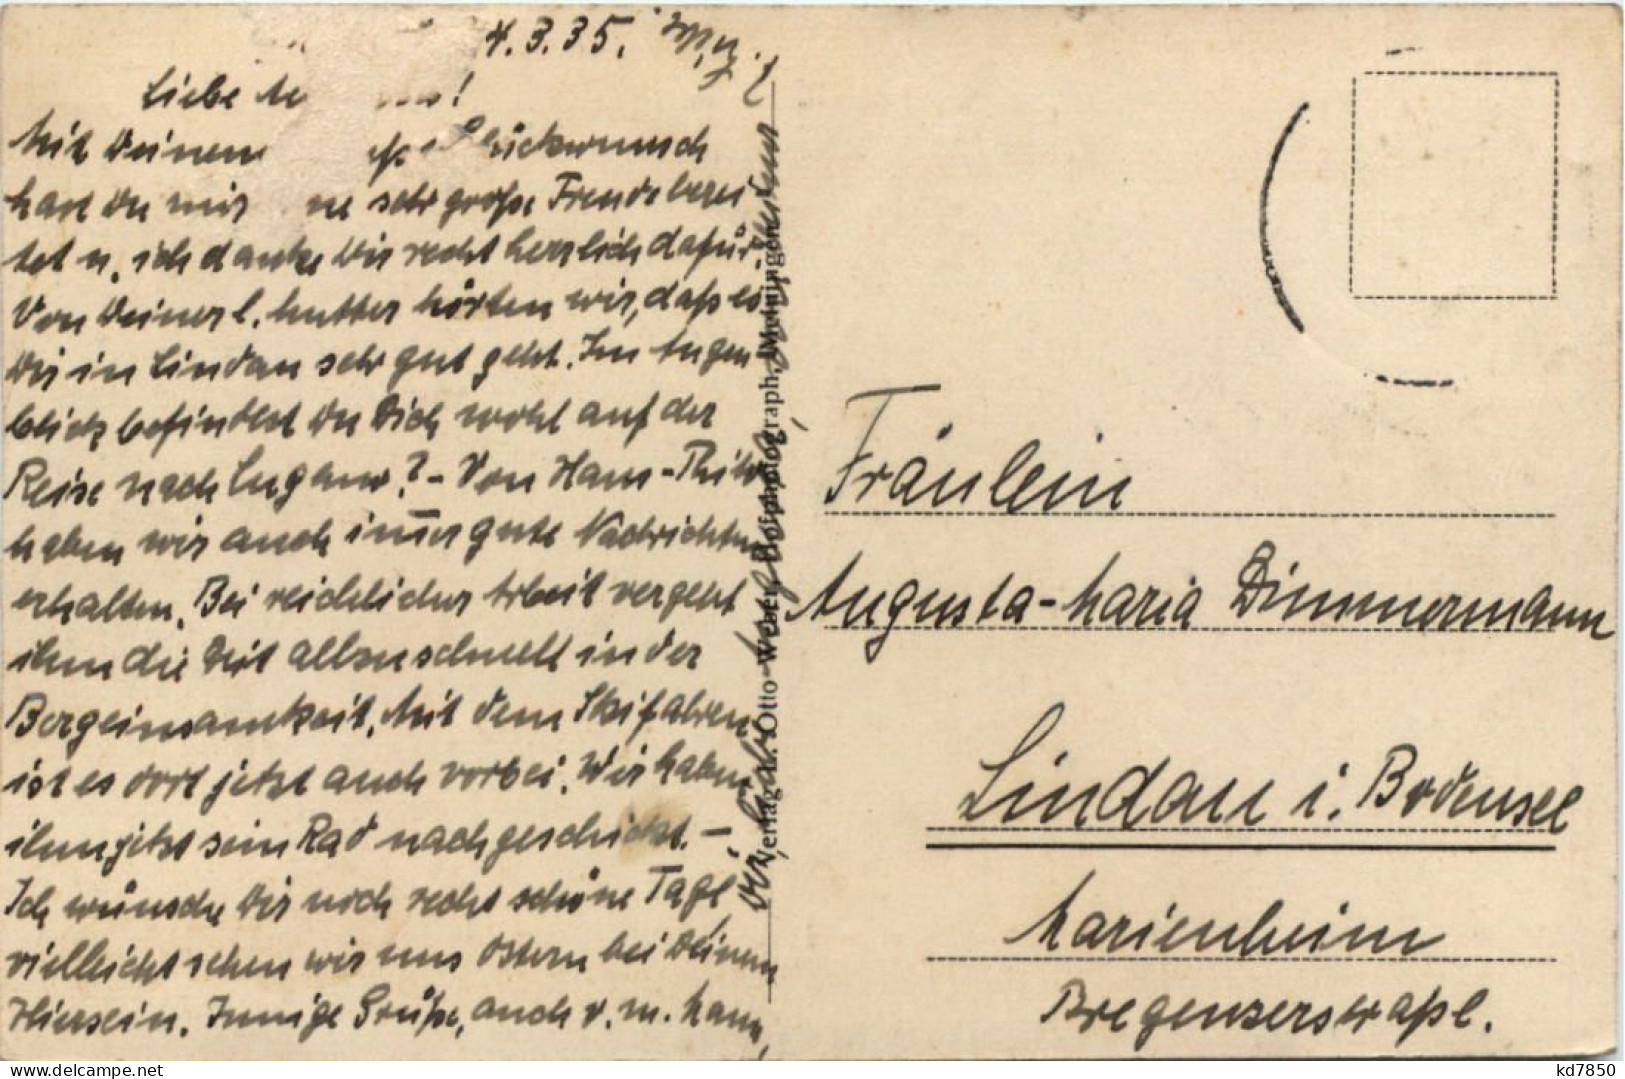 4.3.35.
Liebe
Mit Deinem Glückwunsch
hast Du mir ne sehr große Freude berei
tet u. ich danke Dir recht herzlich dafür.
Von Deiner l. Mutter hörten wir, daß es
Dir in Lindau sehr gut geht. Im Augen
blick befindest Du Dich wohl auf der
Reise nach Lugano? - Von Hans-
haben wir auch im̅er gute Nachrichten
erhalten. Bei reichlicher Arbeit vergeht
ihm die Zeit allzu schnell in der
Bergeinsamkeit. Mit dem Skifahren
ist es dort jetzt auch vorbei. Wir haben
ihm jetzt sein Rad nachgeschickt. -
Ich wünsche Dir noch recht schöne Tage,
vielleicht sehen wir uns Ostern bei Deinem
Hiersein. Innige Grüße, auch v. m. Mann,
Verlag v. Otto Weber, Hofphotograph, Meiningen
Fräulein
Augusta-Maria Dimmermann
Lindau i. Bodensee
Marienheim
Bregenzerstraße.
kd7850